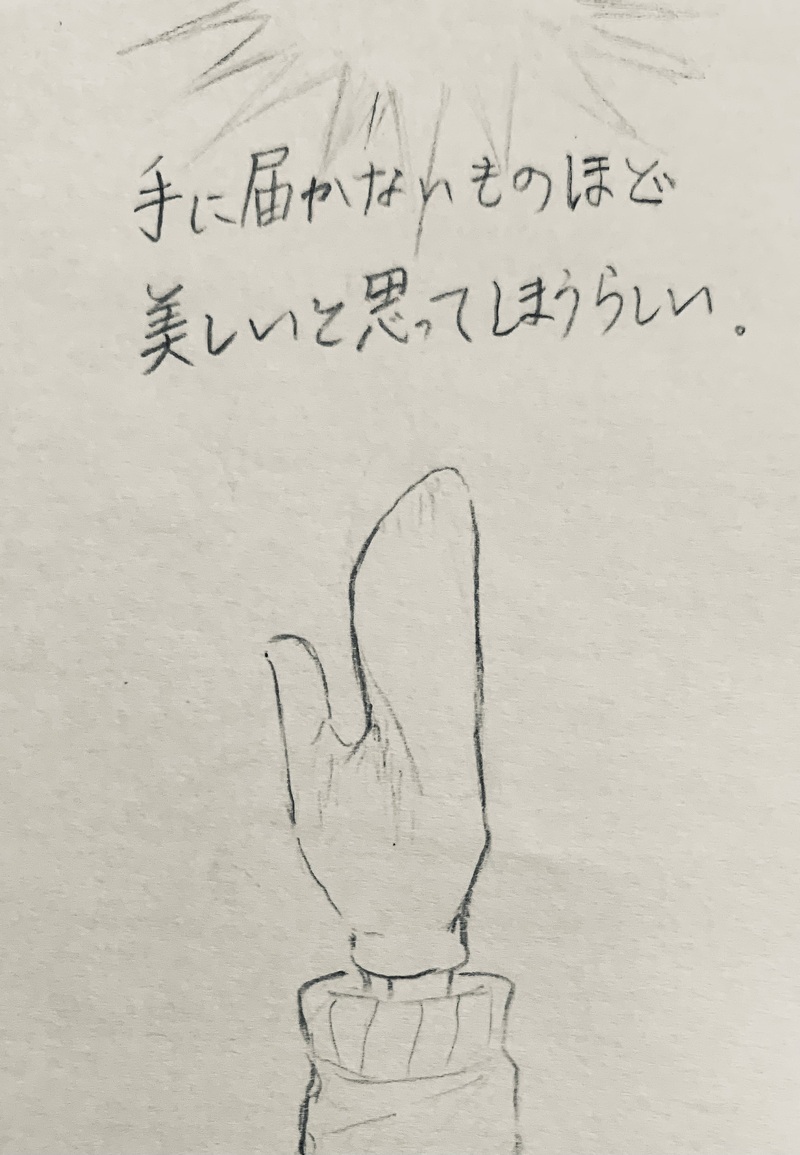 手に届かないものほど
美しいと思ってしまうらしい。